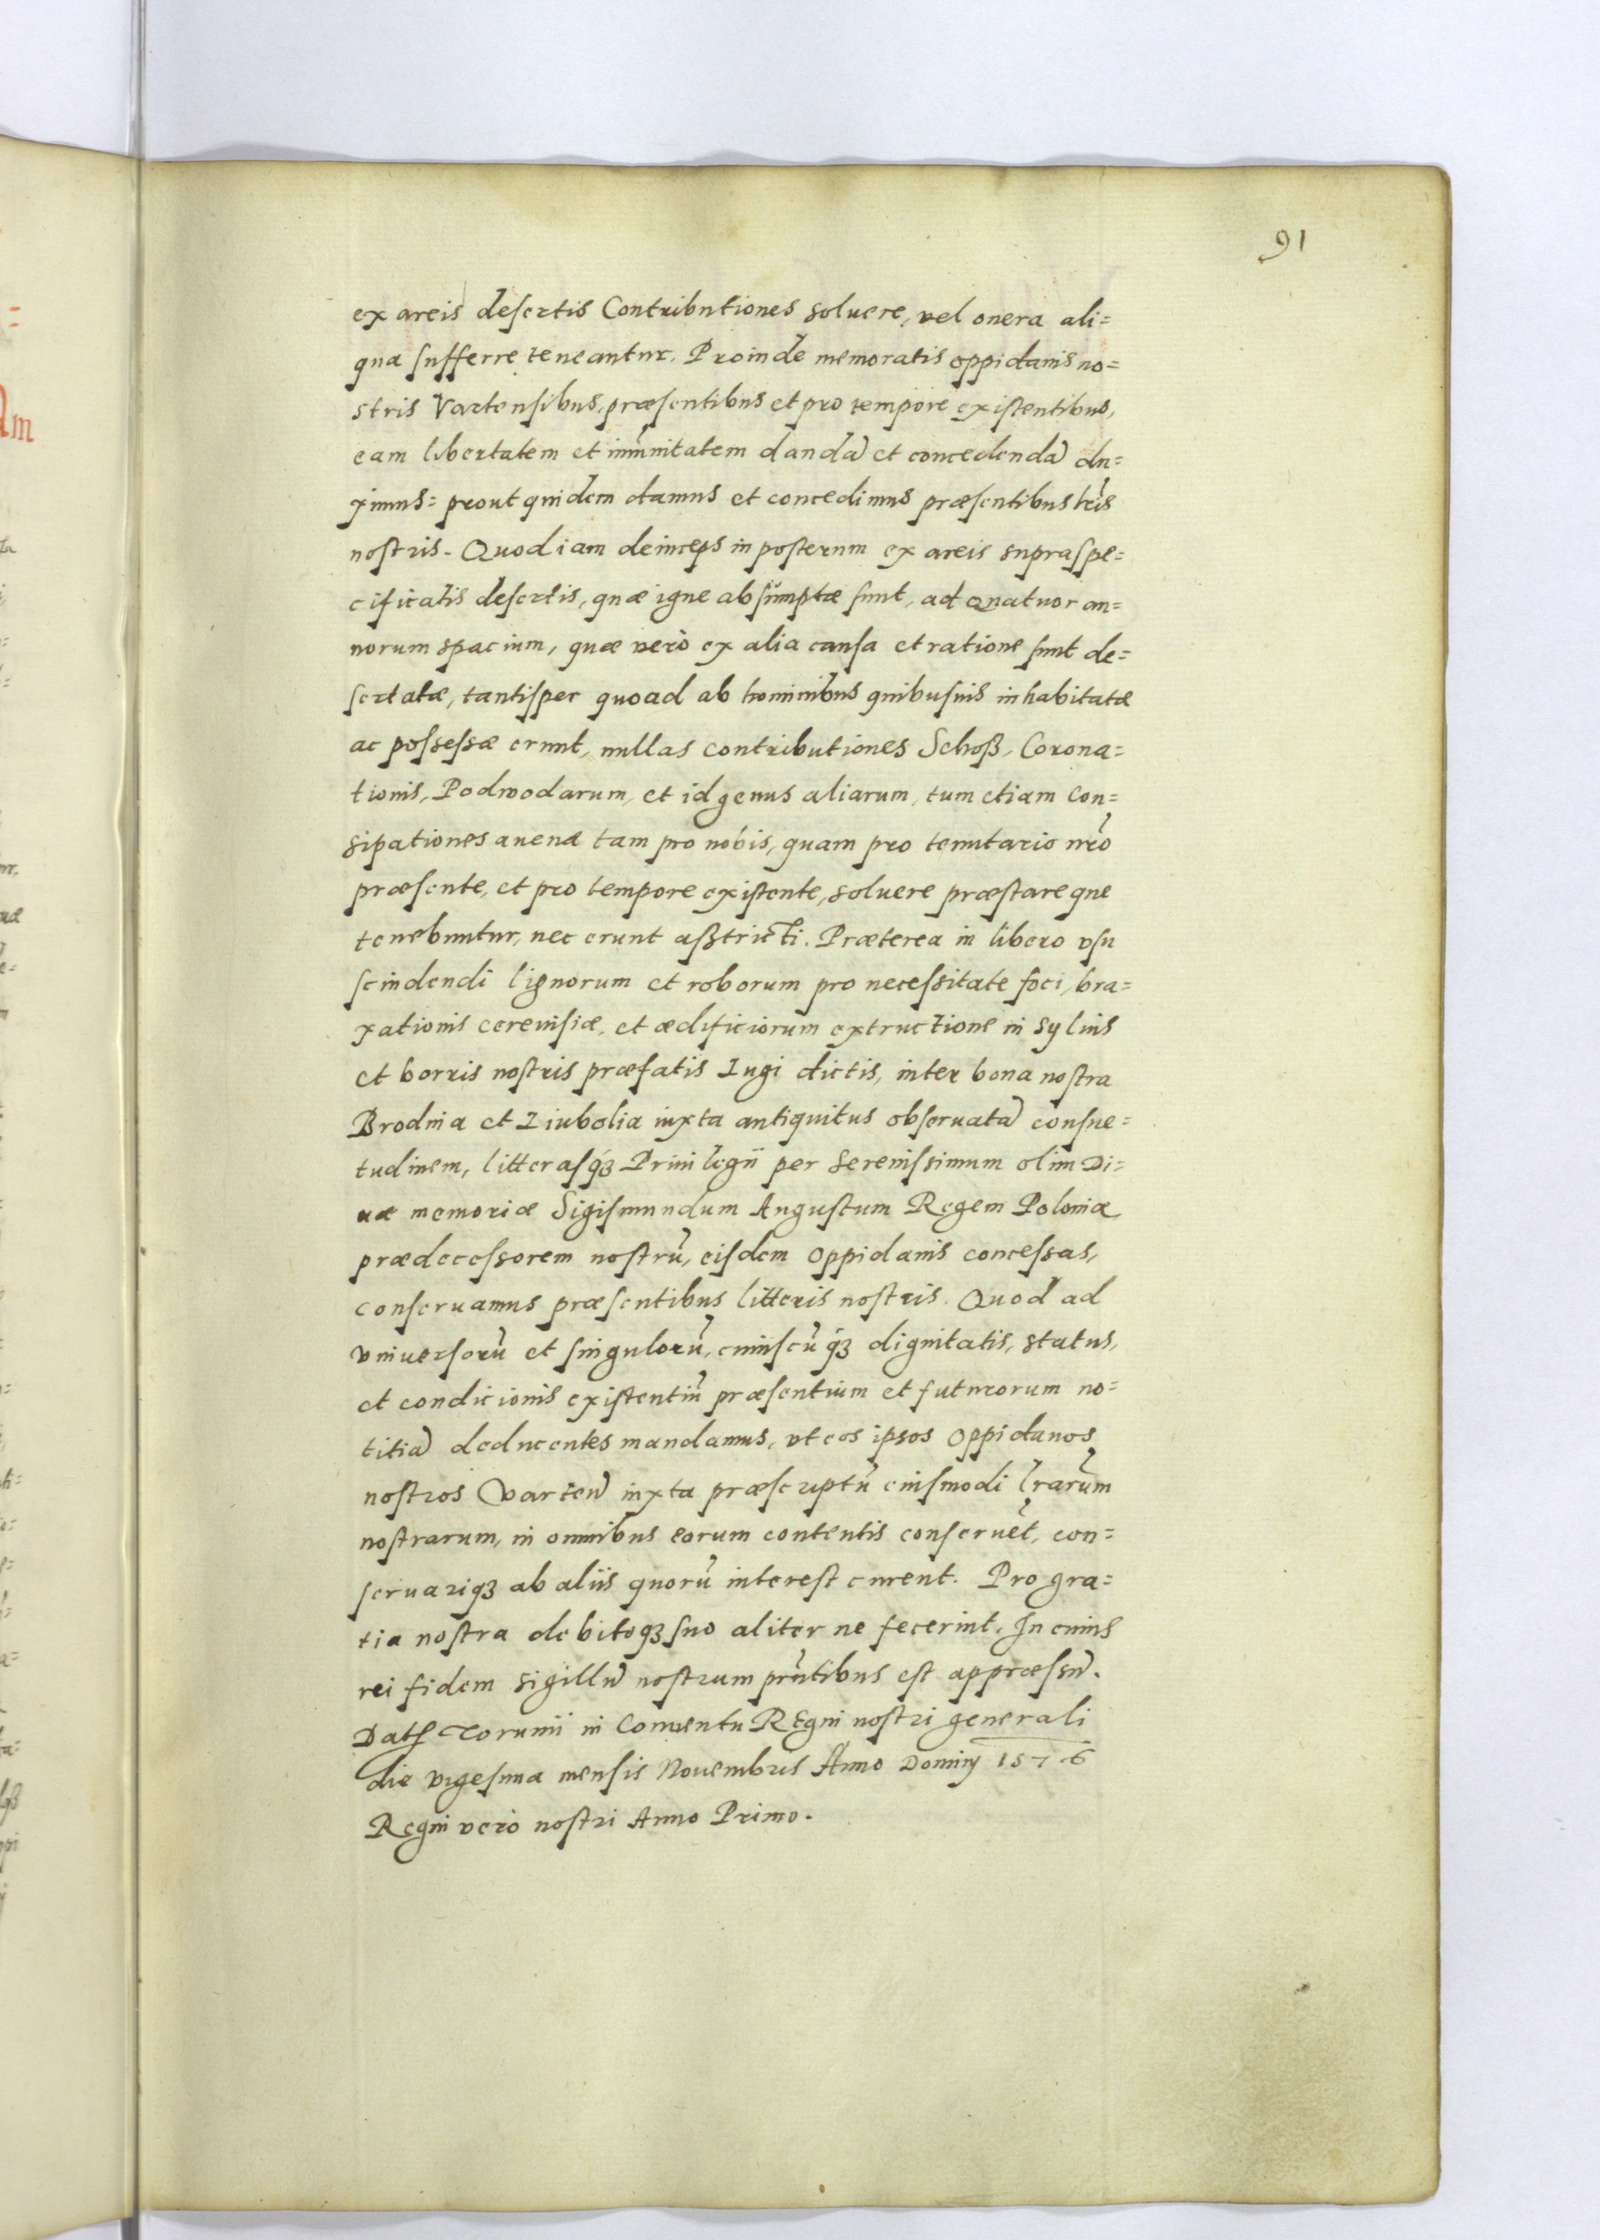 91
ex areis desertis Contributiones soluere, vel onera ali=
qua sufferre teneantur. Proinde memoratis oppidanis no=
stris Vartensibus, præsentibus et pro tempore existentibus,
eam libertatem et im̃unitatem dandã et concedendã du=
ximus= prout quidem damus et concedimus præsentibus lr̃is
nostris. Quod iam deinceps in posterum ex areis supraspe=
cificatis desertis, quæ igne absumptæ sunt, ad quatuor an=
norum spacium, quæ verò ex alia causa et ratione sunt de=
sertatæ, tantisper quoad ab hominibus quibusuis inhabitatæ
ac possessæ erunt, nullas contributiones Schoß, Corona=
tionis, Podwodarum, et id genus aliarum, tum etiam Con=
sipationes auenæ tam pro nobis, quam pro tenutario nr̃o
præsente, et pro tempore existente, soluere præstareque
tenebuntur, nec erunt aßtricti. Præterea in libero vsu
scindendi lignorum et roborum pro necessitate foci, bra=
xationis cereuisiæ, et ædificiorum extructione in syluis
et borris nostris præfatis Lugi dictis, inter bona nostra
Brodnia et Liubolia iuxta antiquitus obseruatã consue=
tudinem, litterasqꝫ Priuilegii per Serenissimum olim Di=
uæ memoriæ Sigismundum Augustum Regem Poloniæ
prædecessorem nostrũ, eisdem oppidanis concessas,
conseruamus præsentibus litteris nostris. Quod ad
vniuersorũ et singulorũ, cuiuscũqꝫ dignitatis, status,
et condicionis existentiũ præsentium et futurorum no=
titiã deducentes mandamus, vt eos ipsos oppidanos
nostros Varteñ iuxta præscriptũ eiusmodi lr̃arum
nostrarum, in omnibus eorum contentis conseruẽt, con=
seruariqꝫ ab aliis quorũ interest curent. Pro gra=
tia nostra debitoqꝫ suo aliter ne fecerint. In cuius
rei fidem sigillũ nostrum pr̃ntibus est appræssũ.
Datꝭ Torunii in Conuentu Regni nostri generali
die vigesima mensis Nouembris Anno Dominj 1576
Regni verò nostri Anno Primo.